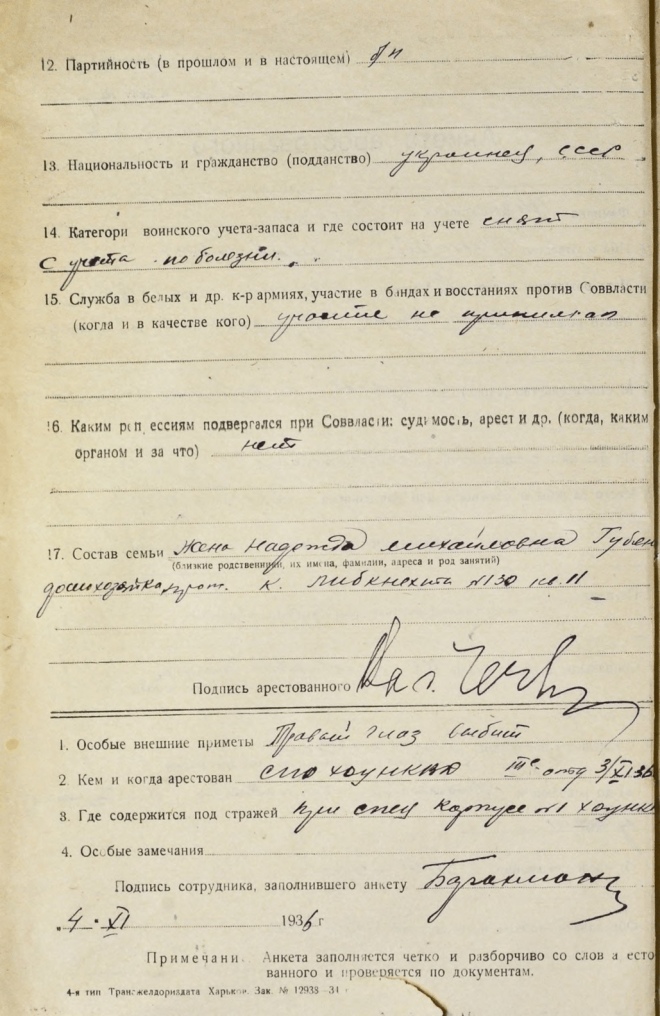 12. Партийность (в прошлом и в настоящем) б/п
13. Национальность и гражданство (подданство) украинец, СССР
14. Категори воинского учета-запаса и где состоит на учете снят
с учета по болезни.
15. Служба в белых и др. к-р армиях, участие в бандах и восстаниях против Соввласти
(когла и в качестве кого) участие не принимал
16. Каким реп ессиям подвергался при Соввласти: судимость, арест и др. (когда, каким
органом и за что) нет
17. Состав семьи Жена Надежда Михайловна Губен
(близкие родственники, их имена, фамилии, адреса и род занятий)
домохозяйка, К. Либкнехта №130 кв. 11
Подпись арестованного
1. Особые внешние приметы Правый глаз выбит
2. Кем и когда арестован СПО ХОУНКВД III е отд 3/XI 36
3. Где содержится под стражей при спец корпусе №1 ХОУНКВ
4. Особые замечания
Подпись сотрудника, заполнившего анкету
4 XI 1936 г
Примечани Анкета заполняется четко и разборчиво со слов а есто
ванного и проверяется по документам.
4-я тип Трансжелдориздата Харьков. Зак. № 12938—34